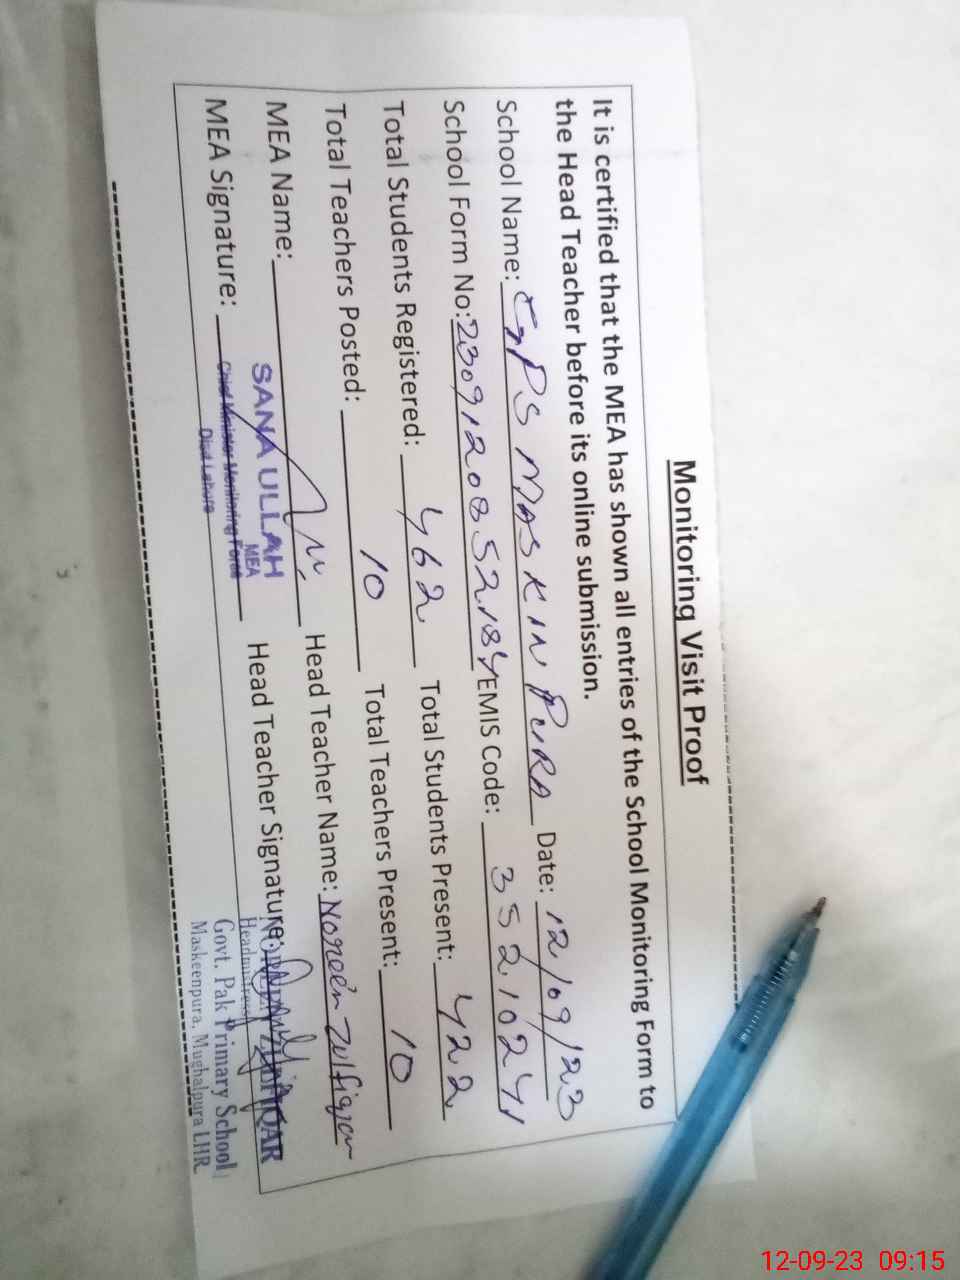 Monitoring Visit Proof
It is certified that the MEA has shown all entries of the School Monitoring Form to
the Head Teacher before its online submission.
School Name: GPS MASKIN PURA Date: 12/09/23
School Form No: 23091208352184 EMIS Code: 35210241
Total Students Registered: 462 Total Students Present: 422
Total Teachers Posted: 10 Total Teachers Present: 10
MEA Name: Head Teacher Name: Noreen Zulfiqar
MEA Signature: Head Teacher Signature:
SANA ULLAH
MEA
Chief Minister Monitoring Force
Distt Lahore
Headmistress
Govt. Pak Primary School
Maskeenpura, Mughalpura LHR.
12-09-23 09:15